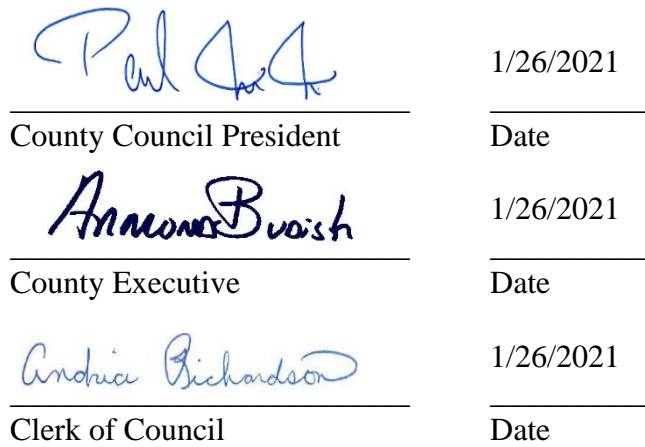 Paul 1/26/2021
County Council President Date
Armond Budish 1/26/2021
County Executive Date
Andria Richardson 1/26/2021
Clerk of Council Date